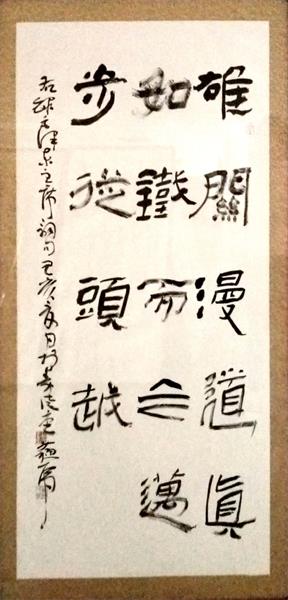 雄關漫道眞
如鐵而今邁
步從頭越
右錄毛泽东主席詞句己亥夏日於